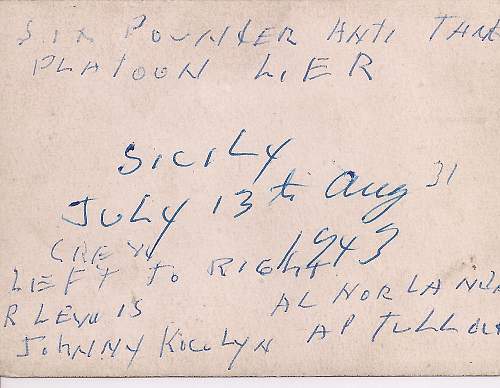 SIX POUNDER ANTI TANK
PLATOON L.E.R
SICILY
JULY 13th Aug 31
1943
CREW
LEFT TO RIGHT
R LEWIS AL NORLAND
JOHNNY AP